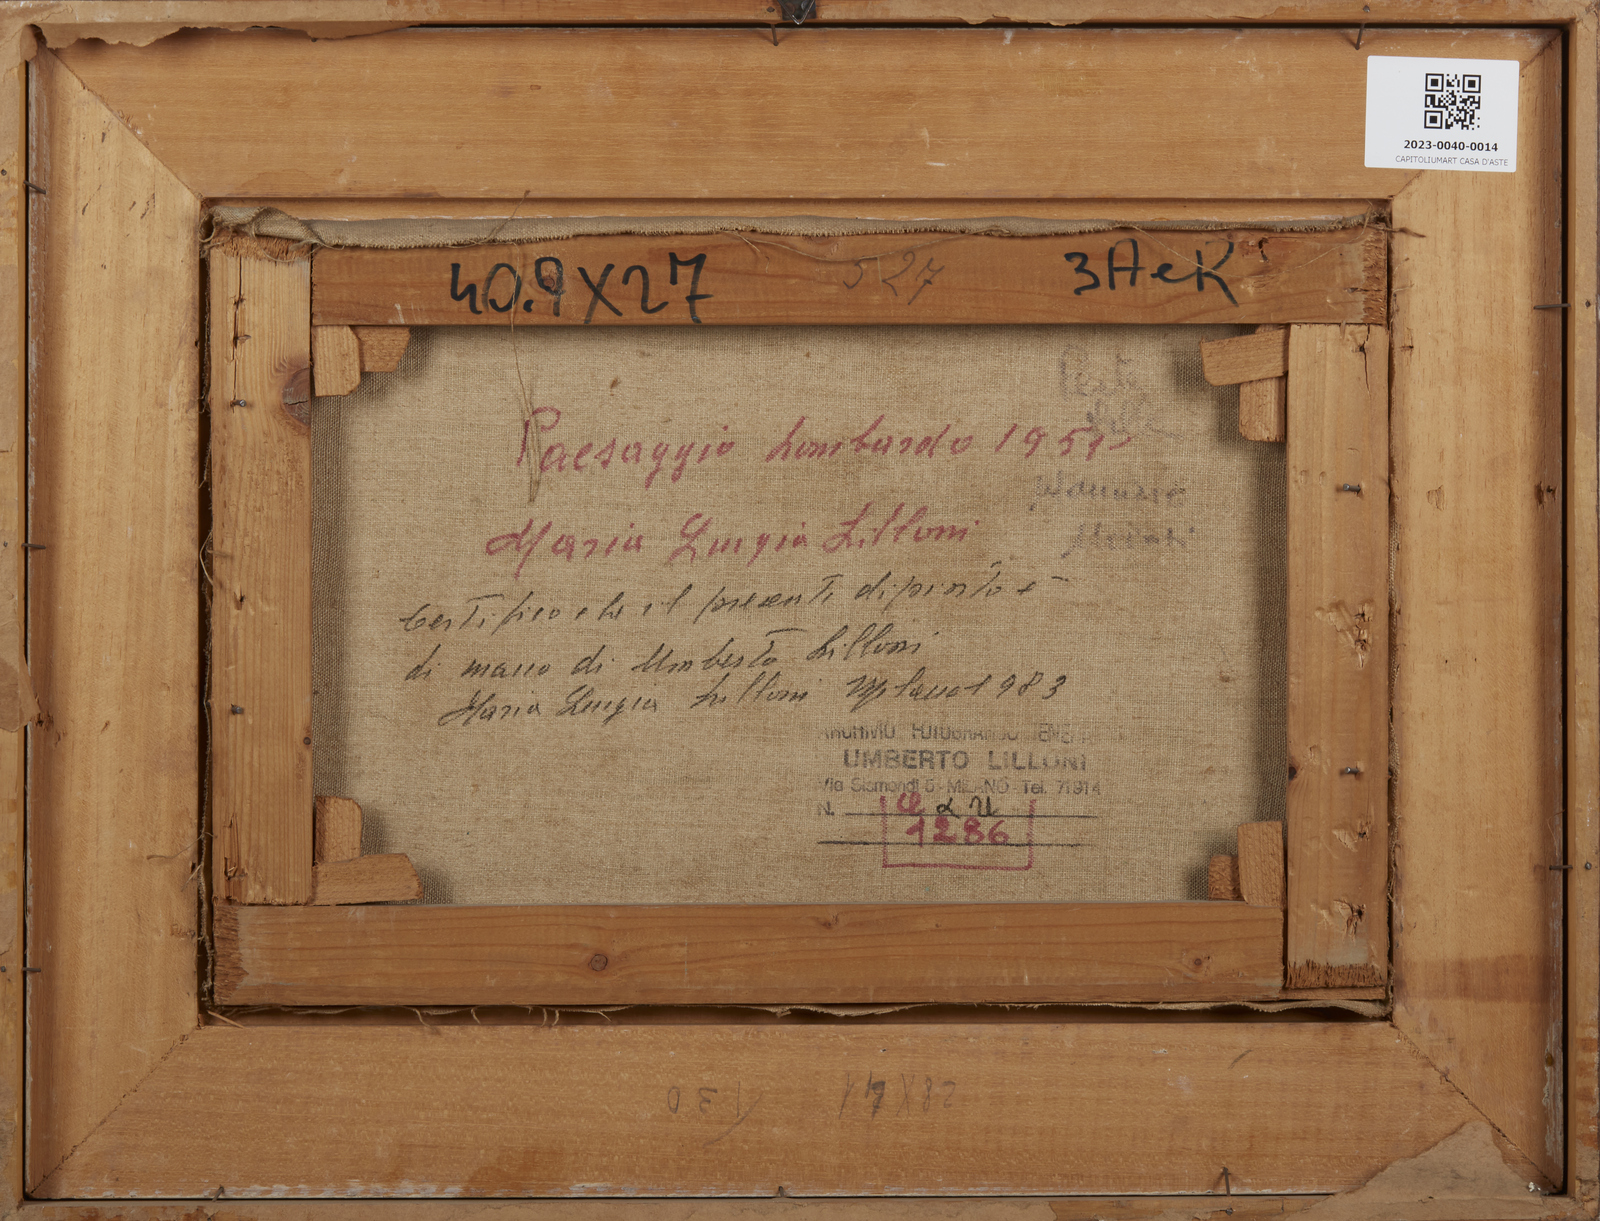 2023-0040-0014
CAPITOLIUMART CASA D'ASTE
40.9X27 527 3AeR
Paesaggio Lombardo 1951
Maria Luigia Lilloni
Certifico che il presente dipinto è
di mano di Umberto Lilloni
Maria Luigia Lilloni Milano 1983
ARCHIVIO FOTOGRAFICO
UMBERTO LILLONI
Via Sismondi 5 - MILANO - Tel. 71914
N.
1286
28X41 130